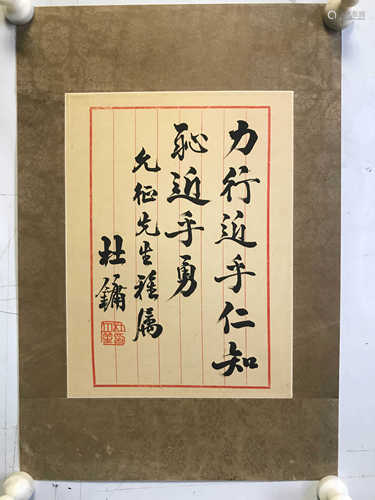 力行近乎仁知
恥近乎勇
允征先生雅属
杜鏞